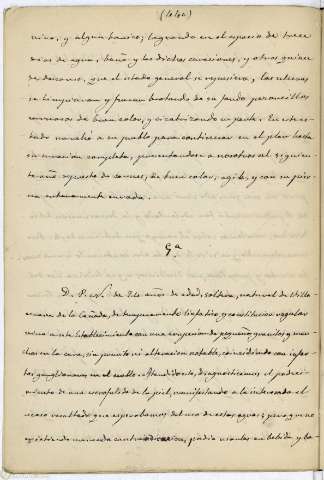 nino, y algun tonico; logrando en el espacio de trece
dias de agua, baño y las dichas curaciones, y otros quince
de descanso, que el estado general se repusiera, las ulceras
se limpiaran y fueran brotando de su fondo pezoncillos
carnosos de buen color, y cicatrizando en parte. En este es-
tado marchó a su pueblo para continuar en el plan hasta
su curacion completa, presentandose a nosotros el siguien-
te año repuesto de carnes, de buen color, agil, y con su pier-
na enteramente curada.
9ª
D. P. y S. de 24 años de edad, soltera, natural de Villa-
nueva de la Cañada, de temperamento linfatico y constitucion regular
vino a este Establecimiento con una erupcion de pequeños granitos y man-
chas en la cara, sin prurito ni alteracion notable, coincidiendo con infar-
tos ganglionares en el cuello. Atendido esto, diagnosticamos el padeci-
miento de una escrofulide de la piel, manifestando a la interesada el
escaso resultado que esperabamos del uso de estas aguas; pero que no
existiendo marcada contraindicacion, podia usarlas en bebida y ba-